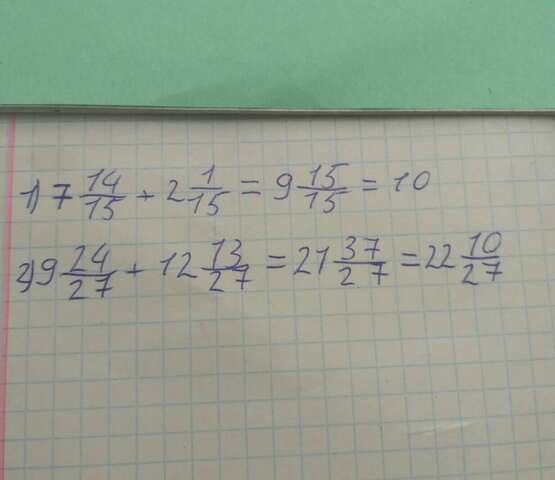 1) 7 14/15 + 2 1/15 = 9 15/15 = 10
2) 9 24/27 + 12 13/27 = 21 37/27 = 22 10/27